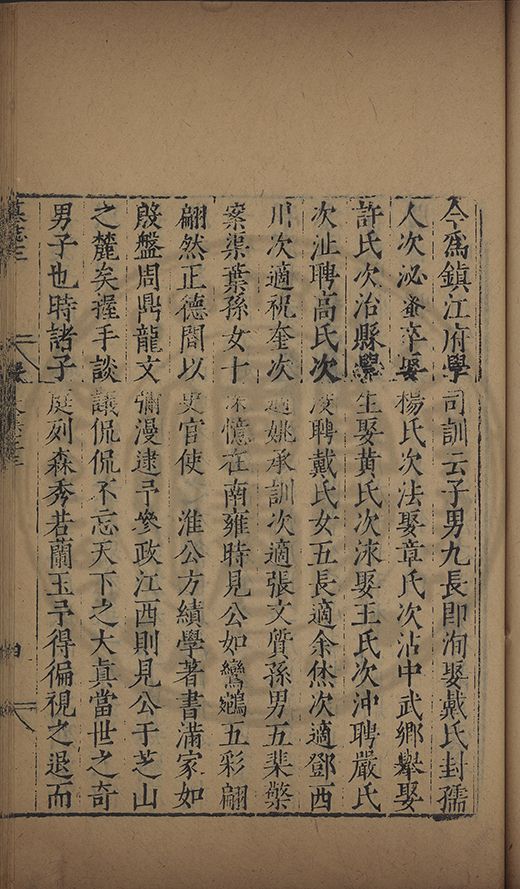 今爲鎮江府學司訓云子男九長即洵娶戴氏封孺
人次泌蚤卒娶楊氏次法娶章氏次沾中武鄉舉娶
許氏次治縣學生娶黃氏次洡娶王氏次沖聘嚴氏
次沚聘高氏次淩聘戴氏女五長適余烋次適鄧西
川次適祝奎次適姚承訓次適張文質孫男五棐檠
案渠葉孫女十 憶在南雍時見公如鸞鵷五彩翩
翩然正德間以史官使 淮公方績學著書滿家如
殷盤周鼎龍文彌漫逮予叅政江西則見公于芝山
之麓矣握手談議侃侃不忘天下之大真當世之奇
男子也時諸子庭列森秀若蘭玉予得徧視之退而
墓誌